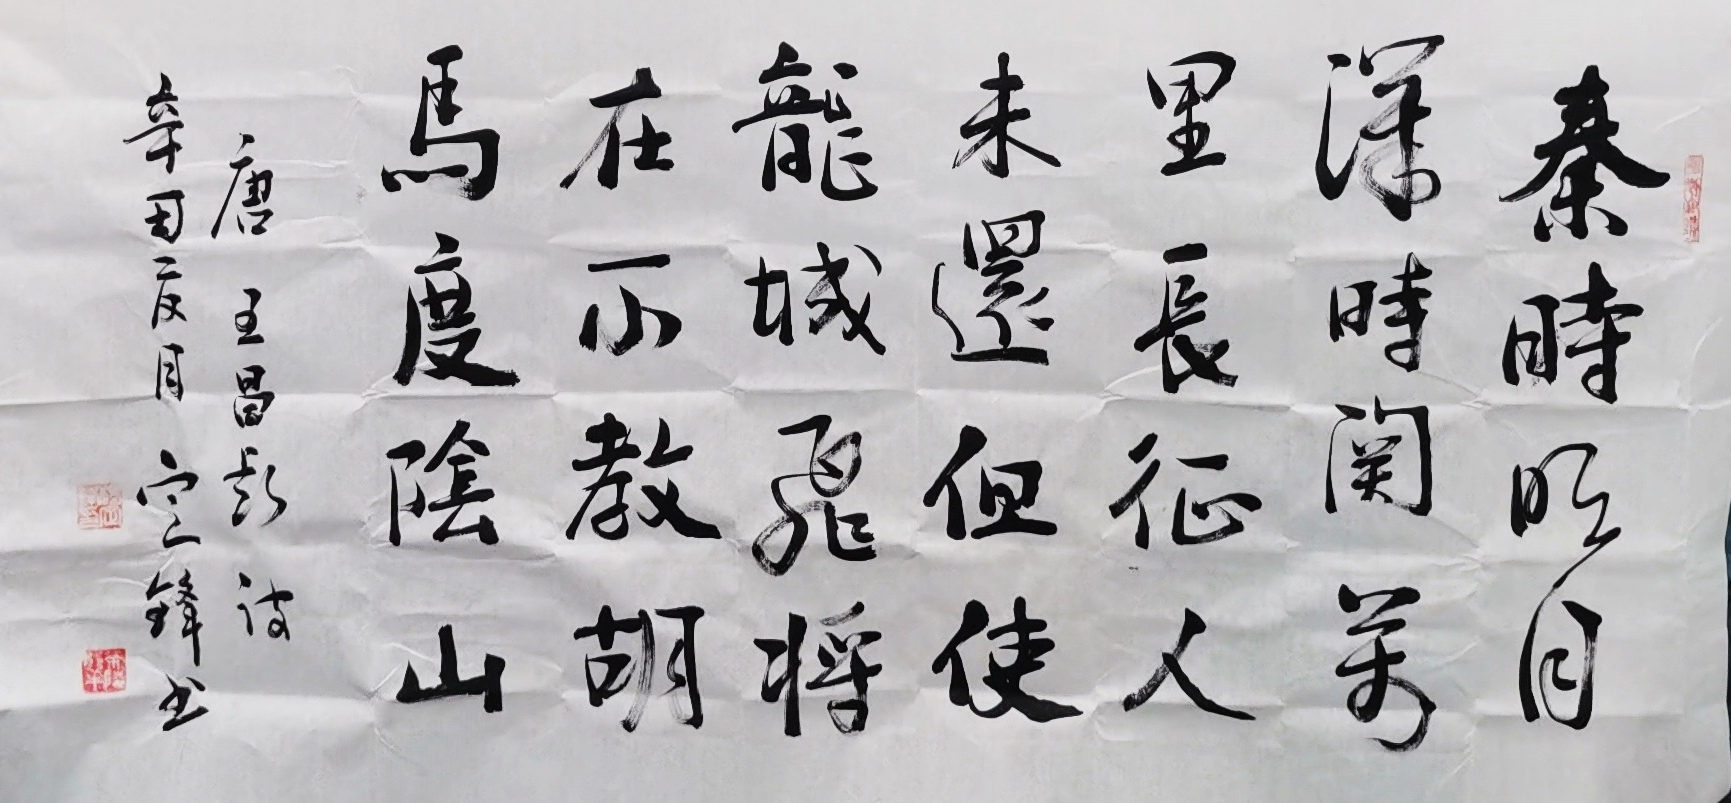 秦時明月
漢時関萬
里長征人
未還但使
龍城飛将
在不教胡
馬度陰山
唐王昌龄诗
辛丑夏月鋒书